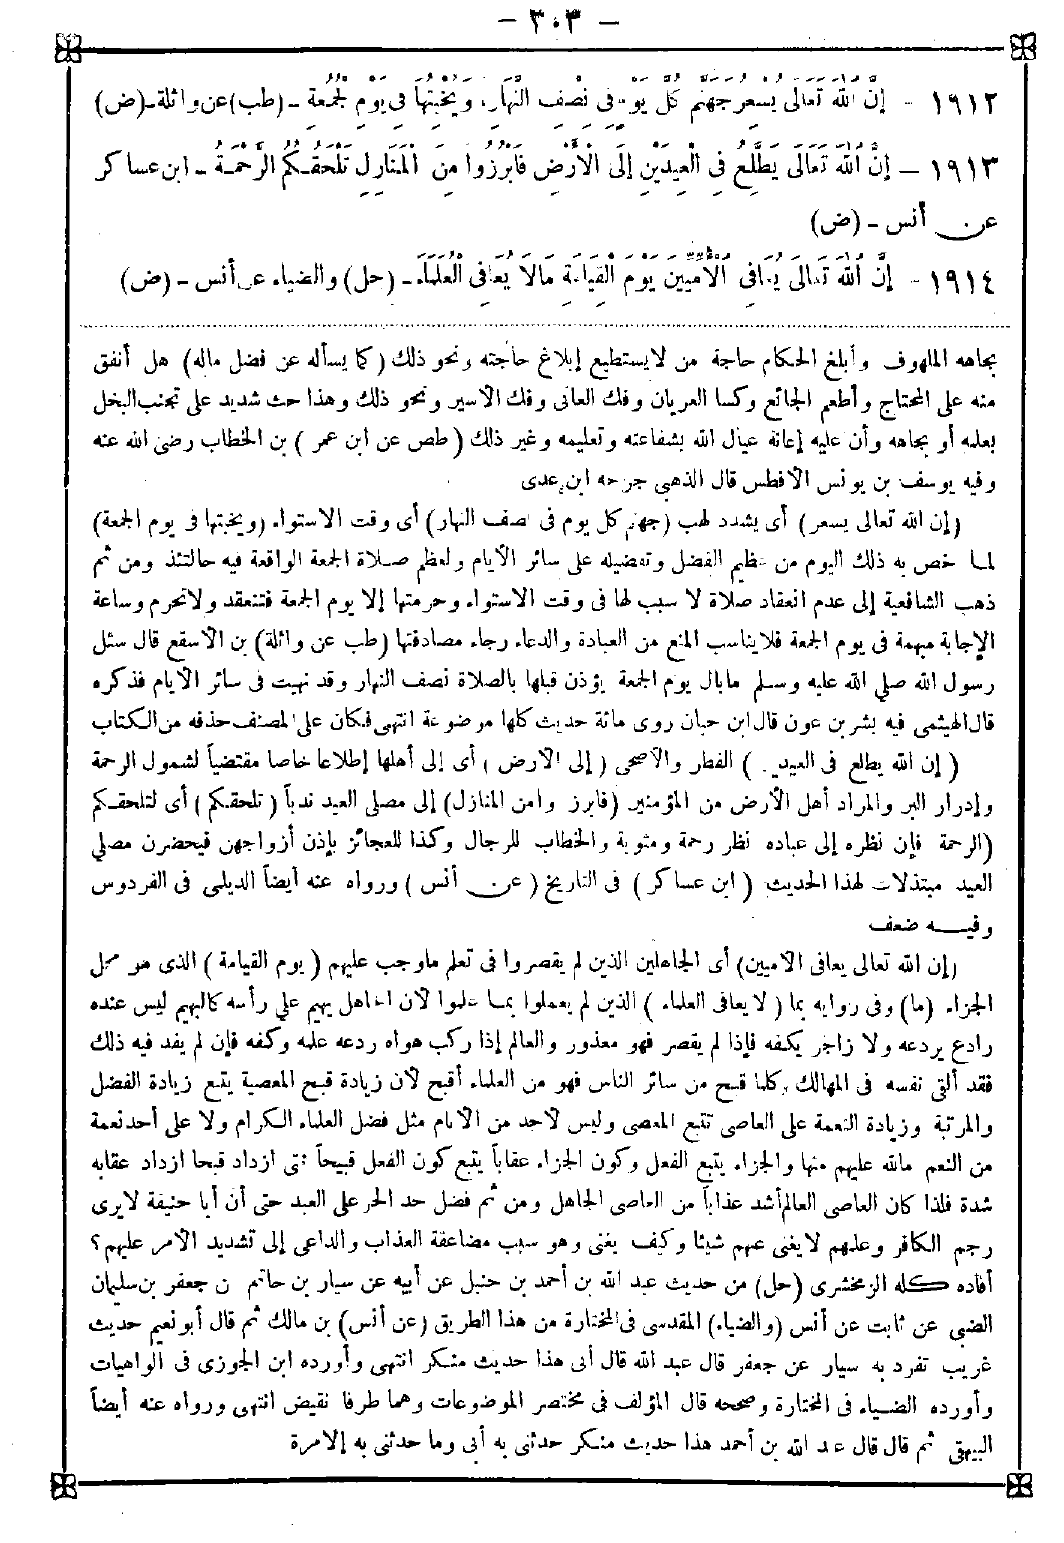 - ٣٠٣ -
١٩١٢ - إِنَّ اللهَ تَعَالَى يُسَعِّرُ جَهَنَّمَ كُلَّ يَوْمٍ فِي نِصْفِ النَّهَارِ، وَيُخْبِتُهَا فِي يَوْمِ الْجُمُعَةِ - (طب) عن واثلة - (ض)
١٩١٣ - إِنَّ اللهَ تَعَالَى يَطَّلِعُ فِي الْعِيدَيْنِ إِلَى الْأَرْضِ فَابْرُزُوا مِنَ الْمَنَازِلِ تَلْحَقْكُمُ الرَّحْمَةُ - ابن عساكر
عن أنس - (ض)
١٩١٤ - إِنَّ اللهَ تَعَالَى يُعَافِي الْأُمِّيِّينَ يَوْمَ الْقِيَامَةِ مَا لَا يُعَافِي الْعُلَمَاءَ - (حل) والضياء عن أنس - (ض)
بجاهه الملهوف وأبلغ الحكام حاجة من لا يستطيع إبلاغ حاجته ونحو ذلك (كما يسأله عن فضل ماله) هل أنفق
منه على المحتاج وأطعم الجائع وكسا العريان وفك العانى وفك الأسير ونحو ذلك وهذا حث شديد على تجنب البخل
بعلمه أو بجاهه وأن عليه إعانة عيال الله بشفاعته وتعليمه وغير ذلك (طص عن ابن عمر) بن الخطاب رضى الله عنه
وفيه يوسف بن يونس الأفطس قال الذهبى جرحه ابن عدى
(إن الله تعالى يسعر) أى يشدد لهب (جهنم كل يوم فى نصف النهار) أى وقت الاستواء (ويخبتها فى يوم الجمعة)
لما خص به ذلك اليوم من عظيم الفضل وتفضيله على سائر الأيام ولعظم صلاة الجمعة الواقعة فيه حالتئذ ومن ثم
ذهب الشافعية إلى عدم انعقاد صلاة لا سبب لها فى وقت الاستواء وحرمتها إلا يوم الجمعة فتنعقد ولا تحرم وساعة
الإجابة مبهمة فى يوم الجمعة فلا يناسب المنع من العبادة والدعاء رجاء مصادفتها (طب عن واثلة) بن الأسقع قال سئل
رسول الله صلى الله عليه وسلم ما بال يوم الجمعة يؤذن قبلها بالصلاة نصف النهار وقد نهيت فى سائر الأيام فذكره
قال الهيثمى فيه بشر بن عون قال ابن حبان روى مائة حديث كلها موضوعة انتهى فكان على المصنف حذفه من الكتاب
(إن الله يطلع فى العيدين) الفطر والأضحى (إلى الأرض) أى إلى أهلها إطلاعا خاصا مقتضياً لشمول الرحمة
وإدرار البر والمراد أهل الأرض من المؤمنين (فابرزوا من المنازل) إلى مصلى العيد ندباً (تلحقكم) أى لتلحقكم
(الرحمة) فإن نظره إلى عباده نظر رحمة ومثوبة والخطاب للرجال وكذا للعجائز بإذن أزواجهن فيحضرن مصلى
العيد مبتذلات لهذا الحديث (ابن عساكر) فى التاريخ (عن أنس) ورواه عنه أيضاً الديلمى فى الفردوس
وفيه ضعف
(إن الله تعالى يعافى الأميين) أى الجاهلين الذين لم يقصروا فى تعلم ما وجب عليهم (يوم القيامة) الذى هو محل
الجزاء (ما) وفى رواية بما (لا يعافى العلماء) الذين لم يعملوا بما علموا لأن الجاهل يهيم على رأسه كالبهيم ليس عنده
رادع يردعه ولا زاجر يكفه فإذا لم يقصر فهو معذور والعالم إذا ركب هواه ردعه علمه وكفه فإن لم يفد فيه ذلك
فقد ألقى نفسه فى المهالك وكلما قبح من سائر الناس فهو من العلماء أقبح لأن زيادة قبح المعصية يتبع زيادة الفضل
والمرتبة وزيادة النعمة على العاصى تتبع المعصى وليس لأحد من الأنام مثل فضل العلماء الكرام ولا على أحد نعمة
من النعم مالله عليهم منها والجزاء يتبع الفعل وكون الجزاء عقاباً يتبع كون الفعل قبيحاً فتى ازداد قبحا ازداد عقابه
شدة فلذا كان العاصى العالم أشد عذاباً من العاصى الجاهل ومن ثم فضل حد الحر على العبد حتى أن أبا حنيفة لا يرى
رجم الكافر وعلمهم لا يغنى عنهم شيئا وكيف يغنى وهو سبب مضاعفة العذاب والداعى إلى تشديد الأمر عليهم؟
أفاده كله الزمخشرى (حل) من حديث عبد الله بن أحمد بن حنبل عن أبيه عن سيار بن حاتم عن جعفر بن سليمان
الضبى عن ثابت عن أنس (والضياء) المقدسى فى المختارة من هذا الطريق (عن أنس) بن مالك ثم قال أبو نعيم حديث
غريب تفرد به سيار عن جعفر قال عبد الله قال أبى هذا حديث منكر انتهى وأورده ابن الجوزى فى الواهيات
وأورده الضياء فى المختارة وصححه قال المؤلف فى مختصر الموضوعات وهما طرفا نقيض انتهى ورواه عنه أيضاً
البيهقى ثم قال قال عبد الله بن أحمد هذا حديث منكر حدثنى به أبى وما حدثنى به إلا مرة